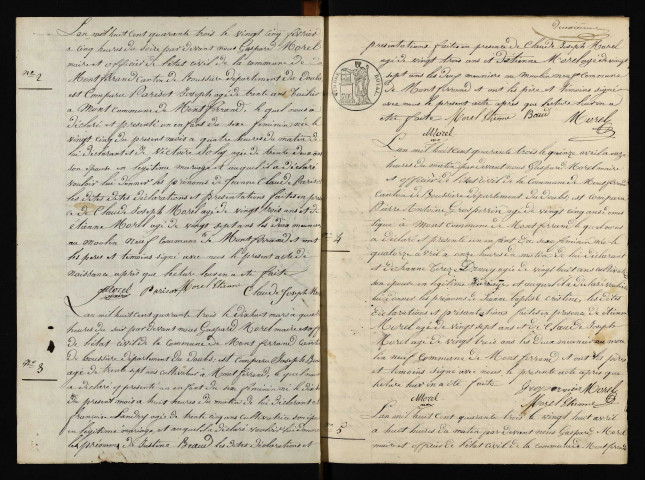 L'an mil huit cent quarante trois le vingt cinq février
a cinq heures du soir par devant nous Gaspard Morel
maire et officier de l'état civil de la commune de
Montferrand Canton de Boussière département du Doubs
est comparu Parisot Joseph agé de trente ans
a Mont commune de Montferrand, lequel nous a
déclaré et présenté un enfant du sexe féminin née le
vingt cinq du présent mois a heures du matin de
lui déclarant et de Victoire agé de trente
son épouse en légitime mariage et auquel il a déclaré
vouloir lui donner les prénoms de Jeanne Claude Parisot
les dites déclarations et présentations faites en présence
de Claude Joseph Morel agé de vingt trois ans et
Etienne Morel agé de vingt sept ans les deux meuniers
au moulin neuf Commune de Montferrand et ont
les pères et témoins signé avec nous le présent acte de
naissance après que lecture leur en a été faite
Morel Parisot Morel Etienne Claude Joseph
L'an mil huit cent quarante trois le dix huit mars a quatre
heures du soir par devant nous Gaspard Morel maire et
de l'état civil de la Commune de Montferrand Canton
de Boussière département du Doubs est comparu Joseph
agé de trente sept ans cultivateur a Montferrand, lequel nous
a déclaré et présenté un enfant du sexe féminin né le
du présent mois a huit heures du matin de lui déclarant
françoise Landry agé de trente cinq ans cultivatrice son
en légitime mariage et auquel il a déclaré vouloir lui donner
les prénoms de Justine Beaud les dites déclarations et
nº 2
nº 3
présentations faites en présence de Claude Joseph Morel
agé de vingt trois ans et d'Etienne Morel agé de vingt
sept ans les deux meuniers au moulin neuf Commune
de Montferrand et ont les père et témoins signé
avec nous le présent acte après que lecture leur en a
été faite Morel Etienne Beaud Morel
Morel
L'an mil huit cent quarante trois le quinze avril a onze
heures du matin par devant nous Gaspard Morel maire
et officier de l'état civil de la Commune de Montferrand
Canton de Boussière Département du Doubs est comparu
Pierre Antoine Grosperrin agé de vingt cinq ans
a Mont Commune de Montferrand lequel nous
a déclaré et présenté un enfant du sexe féminin née le
quatorze avril a onze heures du matin de lui déclarant
et de Jeanne agé de vingt huit ans cultivatrice
son épouse en légitime mariage et auquel il a déclaré vouloir
lui donner les prénoms de Jeanne baptiste les dites
déclarations et présentations faites en présence de Etienne
Morel agé de vingt sept ans et de Claude Joseph
Morel agé de vingt trois ans les deux meuniers au
lin neuf Commune de Montferrand et ont les père
et témoins signé avec nous le présent acte après que
lecture leur en a été faite Grosperrin Morel
Morel Morel Etienne
L'an mil huit cent quarante trois le vingt huit avril
a huit heures du matin par devant nous Gaspard Morel
maire et officier de l'état civil de la commune de Montferrand
4
5